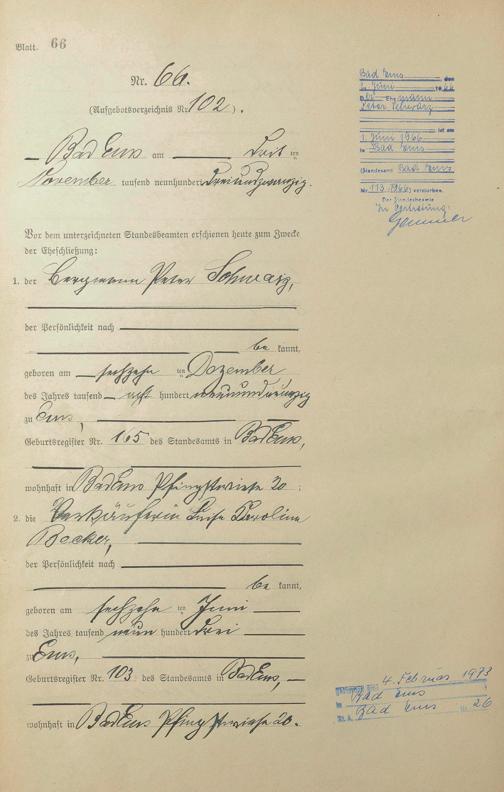 Blatt. 66
Nr. 66.
(Aufgebotsverzeichnis Nr. 102).
Bad Ems am Drit ten
November tausend neunhundert dreiundzwanzig.
Vor dem unterzeichneten Standesbeamten erschienen heute zum Zwecke
der Eheschließung:
1. der Bergmann Peter Schwarz,
der Persönlichkeit nach
be kannt,
geboren am sechzehn ten Dezember
des Jahres tausend acht hundert neunundneunzig
zu Ems,
Geburtsregister Nr. 165 des Standesamts in Bad Ems,
wohnhaft in Bad Ems Pfingstwiese 20 ;
2. die Verkäuferin Luise Karoline
Becker,
der Persönlichkeit nach
be kannt,
geboren am sechzehn ten Juni
des Jahres tausend neun hundert drei
zu Ems,
Geburtsregister Nr. 103 des Standesamts in Bad Ems,
wohnhaft in Bad Ems Pfingstwiese 20.
Bad Ems, den
2. Juni 1966
Der Ehemann
Peter Schwarz
ist am
1. Juni 1966
in Bad Ems
(Standesamt Bad Ems
Nr. 113/1966) verstorben.
Der Standesbeamte
In Vertretung:
4. Februar 1973
in Bad Ems
St. A. Bad Ems Nr. 26